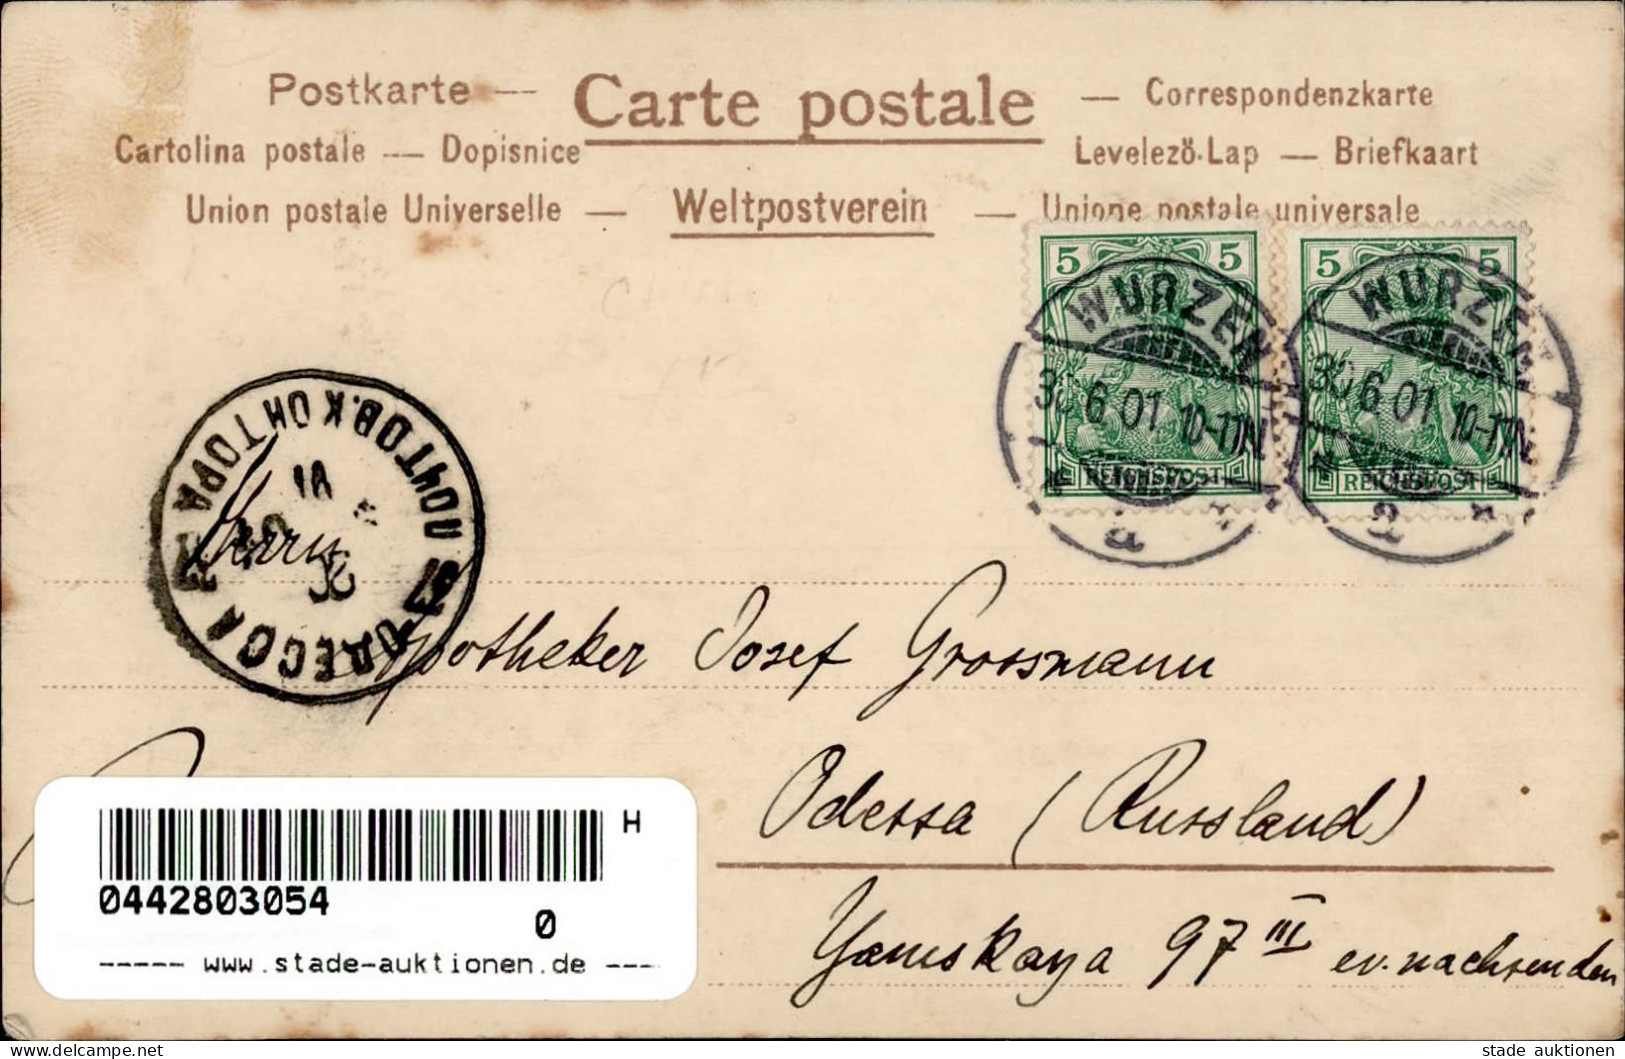 Postkarte — Carte postale — Correspondenzkarte
Cartolina postale — Dopisnice Levelező-Lap — Briefkaart
Union postale Universelle — Weltpostverein — Unione postale universale
5 5 5 5
WURZEN WURZEN
30 6 01 10-11N 30 6 01 10-11N
REICHSPOST REICHSPOST
a a
ПОЧТОВ. КОНТОРА
VI
ОДЕССА
Herrn
Apotheker Josef Grossmann
Odessa (Russland)
Yamskaya 97 III ev. nachsenden
H
0442803054
0
----- www.stade-auktionen.de ---
delcampe.net
stade_auktionen